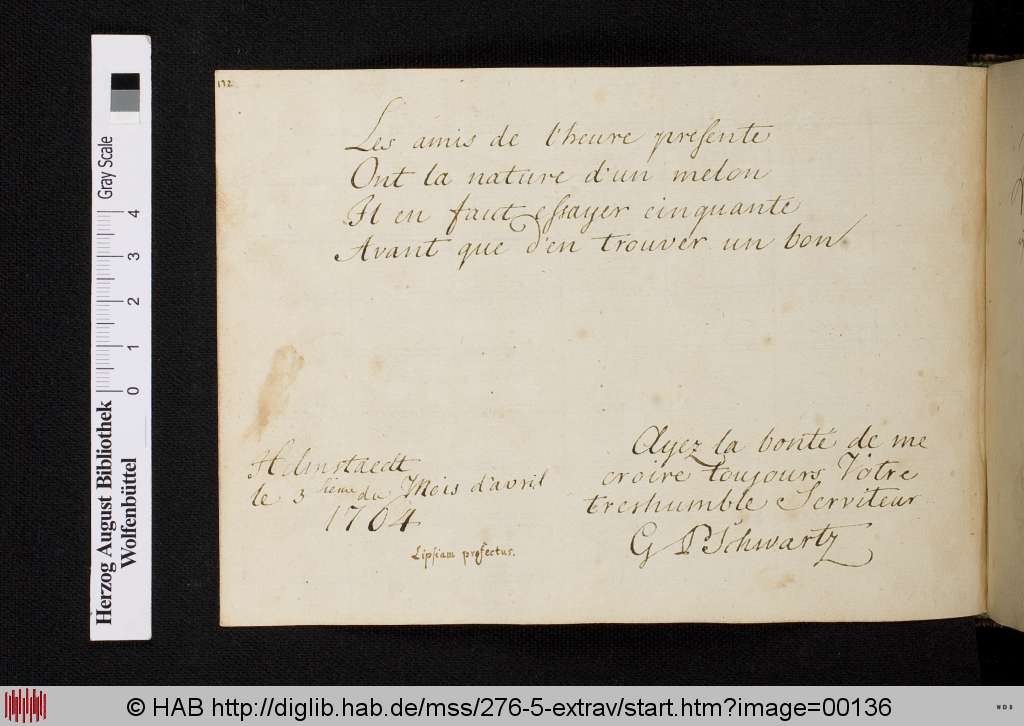 132.
Les amis de l'heure presente
Ont la nature d'un melon
Il en faut essayer cinquante
Avant que d'en trouver un bon.
Helmstaedt
le 3 sième du Mois d'avril
1764
Lipsiam profectus.
Ayez la bonté de me
croire toujours Vôtre
treshumble Serviteur
G P Schwartz
Herzog August Bibliothek
Wolfenbüttel
Gray Scale
0 1 2 3 4
© HAB http://diglib.hab.de/mss/276-5-extrav/start.htm?image=00136
WDB